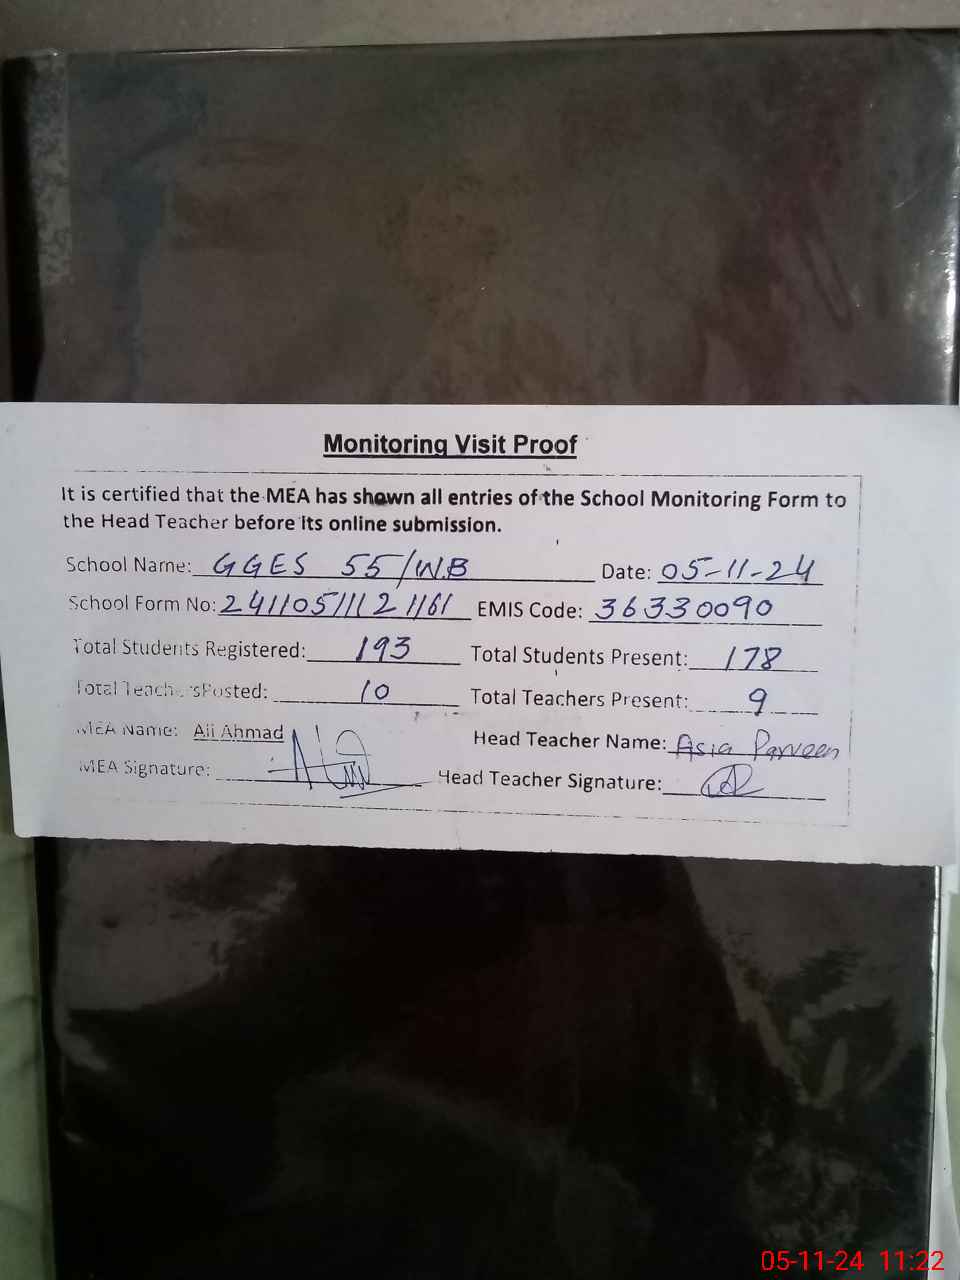 Monitoring Visit Proof
It is certified that the MEA has shown all entries of the School Monitoring Form to
the Head Teacher before its online submission.
School Name: GGES 55/W.B Date: 05-11-24
School Form No: 24110511121161 EMIS Code: 36330090
Total Students Registered: 193 Total Students Present: 178
Total Teachers Posted: 10 Total Teachers Present: 9
MEA Name: Ali Ahmad Head Teacher Name: Asia Parveen
MEA Signature: Head Teacher Signature:
05-11-24 11:22